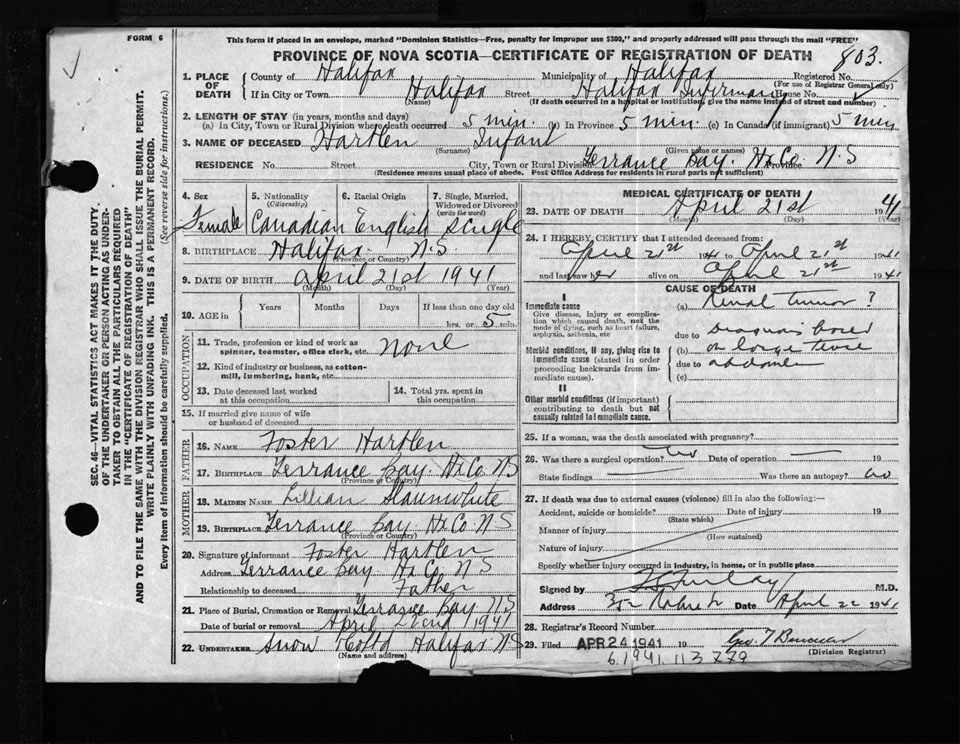 FORM 6
This form if placed in an envelope, marked "Dominion Statistics—Free, penalty for improper use $300," and properly addressed will pass through the mail "FREE"
PROVINCE OF NOVA SCOTIA—CERTIFICATE OF REGISTRATION OF DEATH
803.
1. PLACE OF DEATH
County of Halifax Municipality of Halifax Registered No.
(For use of Registrar General only)
If in City or Town Halifax Street Halifax Infirmary
(Name) (If death occurred in a hospital or institution, give the name instead of street and number)
2. LENGTH OF STAY (in years, months and days)
(a) In City, Town or Rural Division where death occurred 5 min. (b) In Province 5 min. (c) In Canada (if immigrant) 5 min
3. NAME OF DECEASED Hartlen Infant
(Surname) (Given name or names)
RESIDENCE No. Street City, Town or Rural Division Terrance Bay. Hx Co. N.S Province
(Residence means usual place of abode. Post Office Address for residents in rural parts not sufficient)
4. Sex Female
5. Nationality (Citizenship) Canadian
6. Racial Origin English
7. Single, Married, Widowed or Divorced (write the word) Single
8. BIRTHPLACE Halifax N.S.
(Province or Country)
9. DATE OF BIRTH April 21st 1941
(Month) (Day) (Year)
10. AGE in Years Months Days If less than one day old
hrs. or 5 min.
OCCUPATION
11. Trade, profession or kind of work as spinner, teamster, office clerk, etc. None
12. Kind of industry or business, as cotton-mill, lumbering, bank, etc.
13. Date deceased last worked at this occupation
14. Total yrs. spent in this occupation
15. If married give name of wife or husband of deceased
FATHER
16. NAME Foster Hartlen
17. BIRTHPLACE Terrance Bay. Hx Co. N S
(Province or Country)
MOTHER
18. MAIDEN NAME Lillian Slaunwhite
19. BIRTHPLACE Terrance Bay Hx Co N S
(Province or Country)
20. Signature of informant Foster Hartlen
Address Terrance Bay Hx Co N S
Relationship to deceased Father
21. Place of Burial, Cremation or Removal Terrance Bay N S
Date of burial or removal April 22nd 1941
22. UNDERTAKER Snow & Co Ltd Halifax N S
(Name and address)
MEDICAL CERTIFICATE OF DEATH
23. DATE OF DEATH April 21st 1941
(Month) (Day) (Year)
24. I HEREBY CERTIFY that I attended deceased from:
April 21st 1941 to April 21st 1941
and last saw her alive on April 21st 1941
CAUSE OF DEATH
I
Immediate cause
Give disease, injury or complication which caused death, not the mode of dying, such as heart failure, asphyxia, asthenia, etc
(a) Renal tumor ?
due to
Morbid conditions, if any, giving rise to immediate cause (stated in order proceeding backwards from immediate cause).
Diagnosis based
(b) on large tense
due to abdomen
(c)
II
Other morbid conditions (if important) contributing to death but not causally related to immediate cause.
25. If a woman, was the death associated with pregnancy?
26. Was there a surgical operation? No Date of operation 19
State findings Was there an autopsy? No
27. If death was due to external causes (violence) fill in also the following:—
Accident, suicide or homicide? Date of injury 19
(State which)
Manner of injury
(How sustained)
Nature of injury
Specify whether injury occurred in industry, in home, or in public place
Signed by M.D.
Address Date April 22 1941
28. Registrar's Record Number
29. Filed APR 24 1941 19
(Division Registrar)
6.1941 113 779
SEC. 46—VITAL STATISTICS ACT MAKES IT THE DUTY OF THE UNDERTAKER OR PERSON ACTING AS UNDERTAKER TO OBTAIN ALL THE PARTICULARS REQUIRED IN THE "CERTIFICATE OF REGISTRATION OF DEATH" AND TO FILE THE SAME WITH THE DIVISION REGISTRAR WHO SHALL ISSUE THE BURIAL PERMIT.
WRITE PLAINLY WITH UNFADING INK. THIS IS A PERMANENT RECORD.
Every item of information should be carefully supplied. (See reverse side for instructions.)